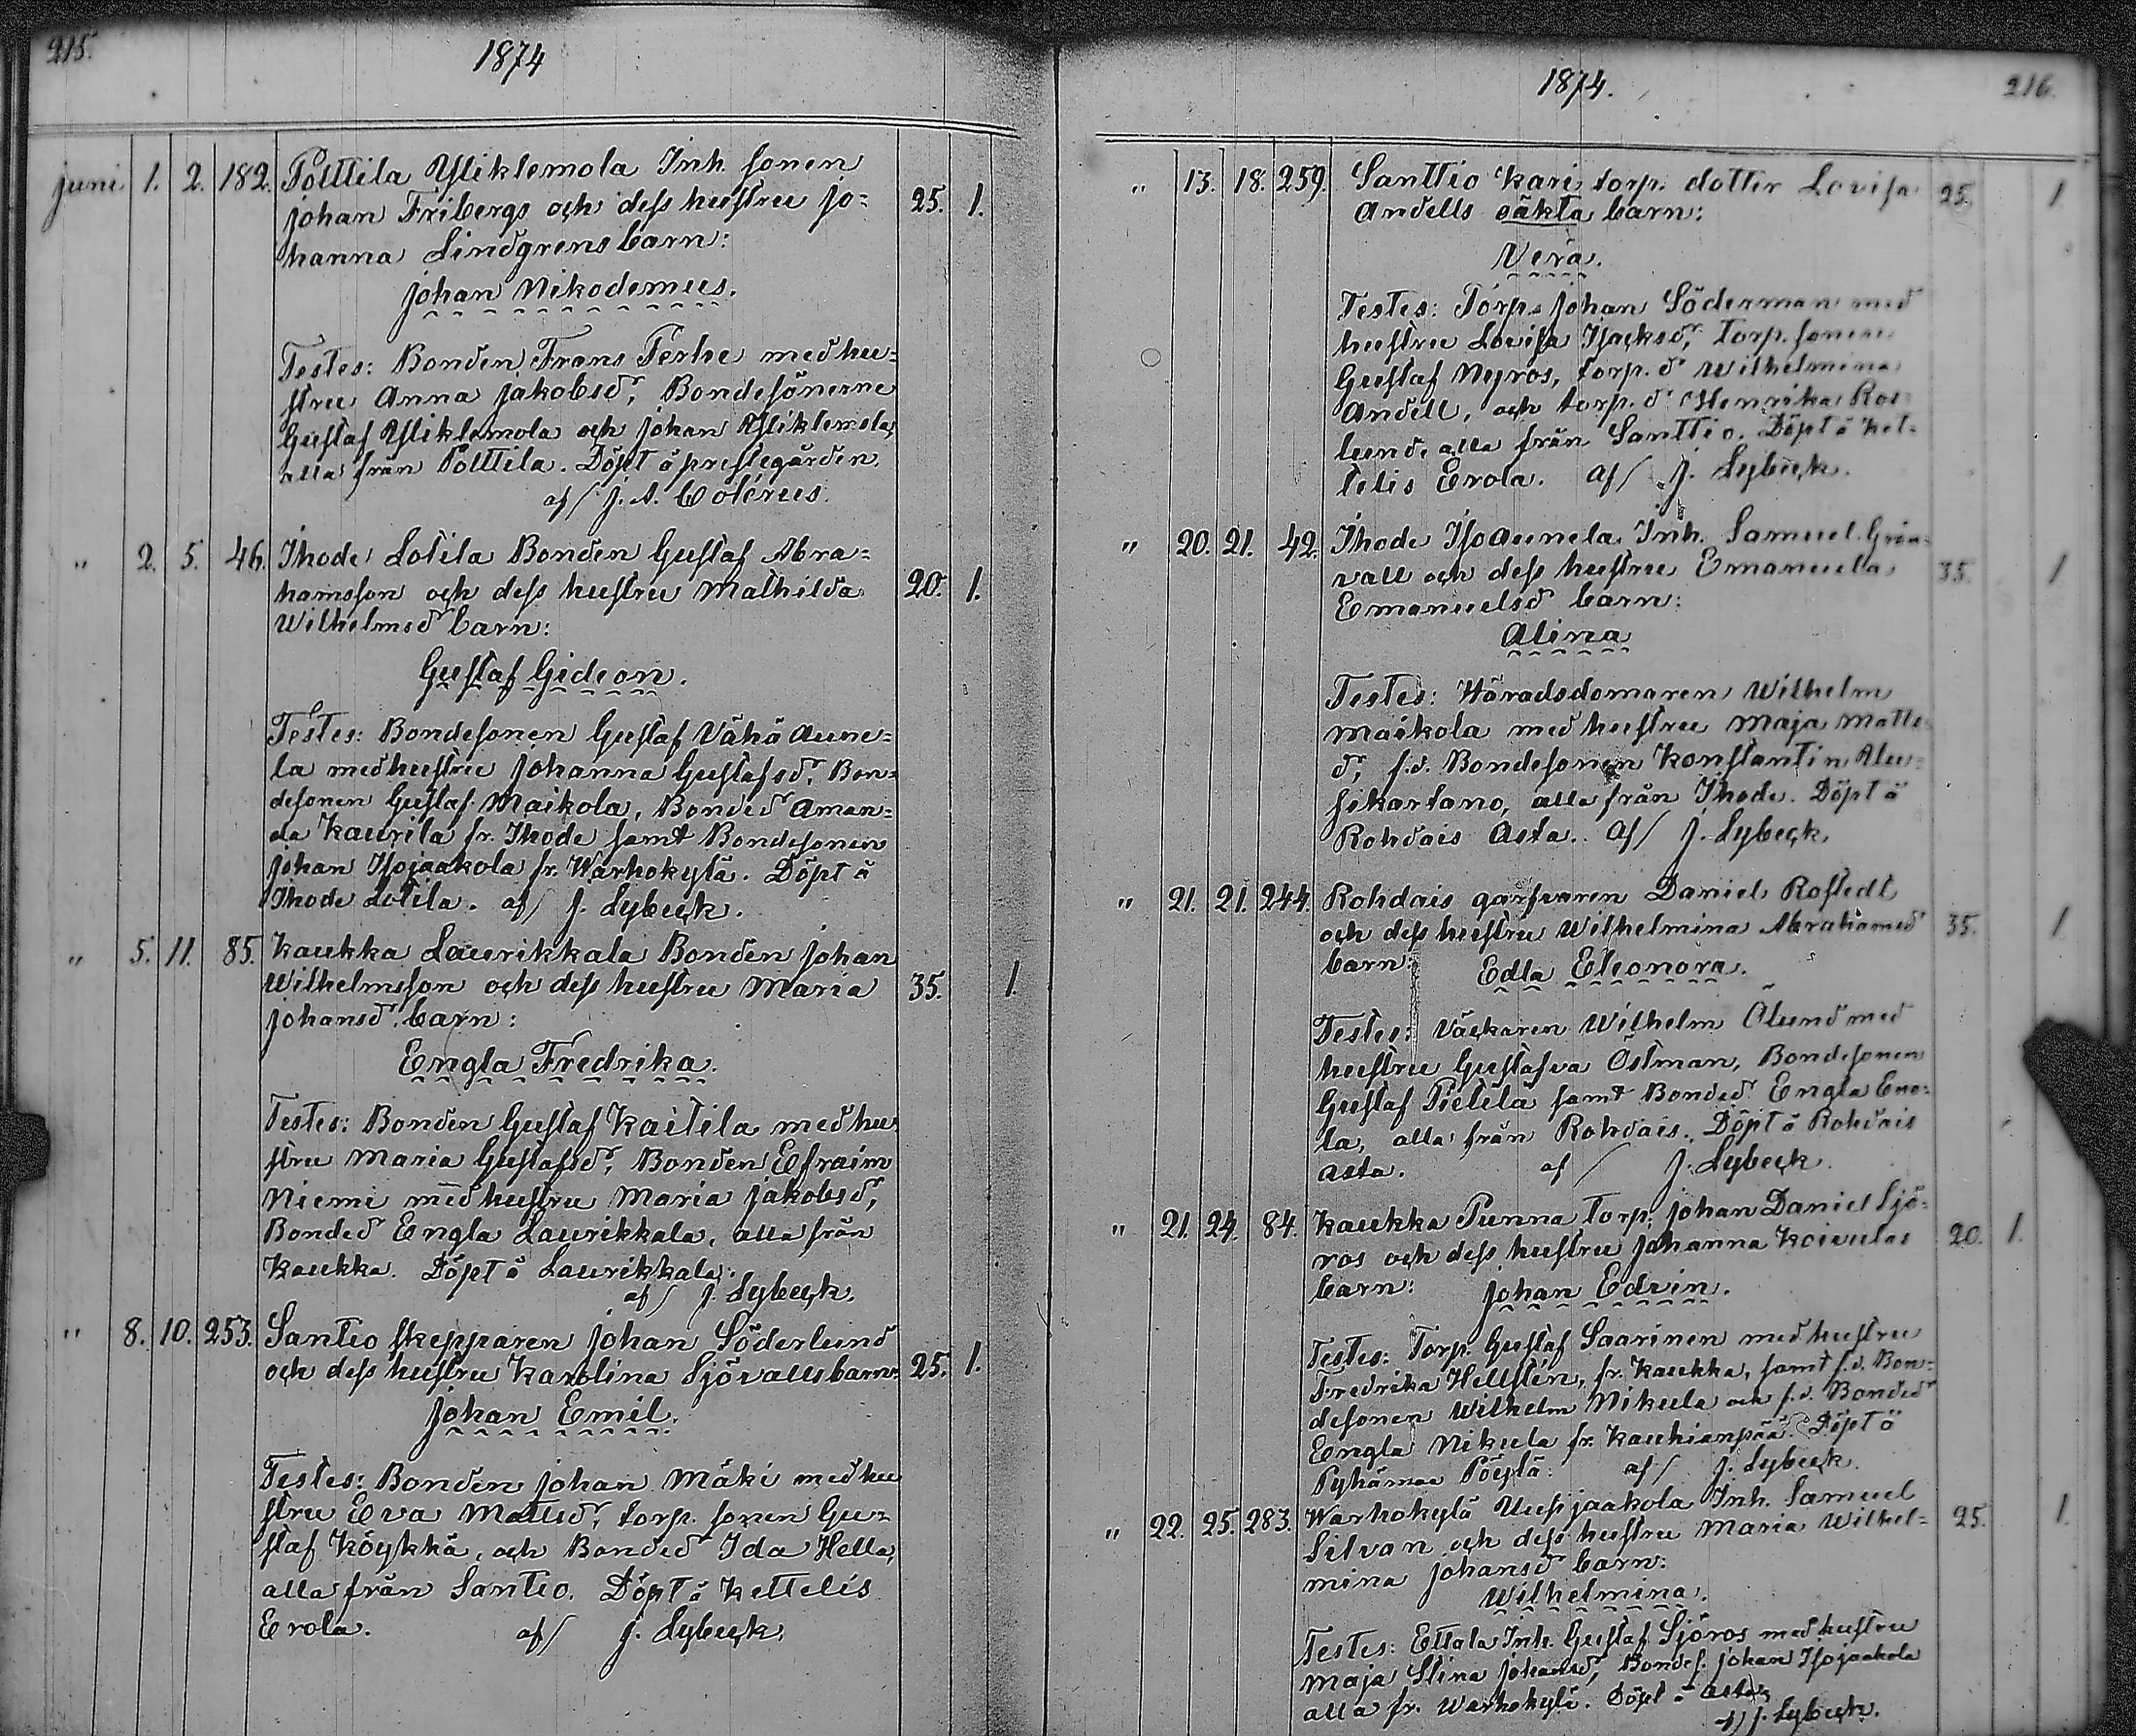 215.
1874
juni 1. 2. 182. Polttila Yliklemola Inh. sonen
Johan Fribergs och dess hustru Jo= 25. 1.
hanna Lindgrens barn:
Johan Nikodemus.
Testes: Bonden Frans Perhe med hu=
stru Anna Jakobsd:r, Bondesönerne
Gustaf Yliklemola och Johan Yliklemola,
alla från Polttila. Döpt å prestegården.
af/ J. A. Colérus.
" 2. 5. 46. Ihode Lotila Bonden Gustaf Abra=
hamsson och dess hustru Mathilda 20. 1.
Wilhelmsd barn:
Gustaf Gideon.
Testes: Bondesonen Gustaf Vähä Aune=
la med hustru Johanna Gustafsd:r, Bon=
desonen Gustaf Maikola, Bonded Aman=
da Kaurila fr. Ihode samt Bondesonen
Johan Isojaakola fr. Warhokylä. Döpt å
Ihode Lotila. af/ J. Lybeck.
" 5. 11. 85. Kaukka Laurikkala Bonden Johan
Wilhelmsson och dess hustru Maria 35. 1.
Johansd. barn:
Engla Fredrika.
Testes: Bonden Gustaf Kaitila med hu
stru Maria Gustafsd:r, Bonden Efraim
Niemi med hustru Maria Jakobsd:r,
Bonded Engla Laurikkala, alla från
Kaukka. Döpt å Laurikkala.
af/ J. Lybeck.
" 8. 10. 253. Santio skepparen Johan Söderlund
och dess hustru Karolina Sjövalls barn: 25. 1.
Johan Emil.
Testes: Bonden Johan Mäki med hu
stru Eva Mattsd:r, torp. sonen Gu=
staf Köykkä, och Bonded Ida Hella,
alla från Santio. Döpt å Kettelis
Erola. af/ J. Lybeck.
1874.
216.
" 13. 18. 259. Santtio Kari torp. dotter Lovisa 25. 1
Andells oäkta barn:
Vera.
Testes: Torp. Johan Söderman med
hustru Lovisa Isacksd:r, torp. sonen
Gustaf Nyros, torp. d:r Wilhelmina
Andell, och torp. d:r Henrika Ros=
lund, alla från Santtio. Döpt å Ket-
telis Erola. af/ J. Lybeck.
" 20. 21. 42. Ihode Isoaunela Inh. Samuel Grön=
vall och dess hustru Emanuela 35. 1
Emanuelsd barn:
Alina
Testes: Häradsdomaren Wilhelm
Maikola med hustru Maja Matts=
d:r, f.d. Bondesonen Konstantin Uu=
sikartano, alla från Ihode. Döpt å
Rohdais Asta. af/ J. Lybeck.
" 21. 21. 244. Rohdais garfvaren Daniel Rostedt
och dess hustru Wilhelmina Abrahamsd 35. 1
barn: Edla Eleonora.
Testes: Väckaren Wilhelm Ölund med
hustru Gustafva Östman, Bondesonen
Gustaf Pietilä samt Bonded Engla Eno=
la, alla från Rohdais. Döpt å Rohdais
Asta. af/ J. Lybeck.
" 21. 24. 84. Kaukka Punna torp. Johan Daniel Sjö=
ros och dess hustru Johanna Koivulas 20. 1.
barn: Johan Edvin.
Testes: Torp. Gustaf Saarinen med hustru
Fredrika Hellstén, fr. Kaukka, samt f.d. Bon=
desonen Wilhelm Nikula och f.d. Bonded
Engla Nikula fr. Kauhianpää. Döpt å
Pyhämaa Pöylä. af/ J. Lybeck.
" 22. 25. 283. Warhokylä Uusijaakola Inh. Samuel
Silvan och dess hustru Maria Wilhel= 25. 1.
mina Johansd barn:
Wilhelmina.
Testes: Ettala Inh. Gustaf Sjöros med hustru
Maja Stina Johansd:r, Bondes. Johan Isojaakola
alla fr. Warhokylä. Döpt å Asta.
af/ J. Lybeck.